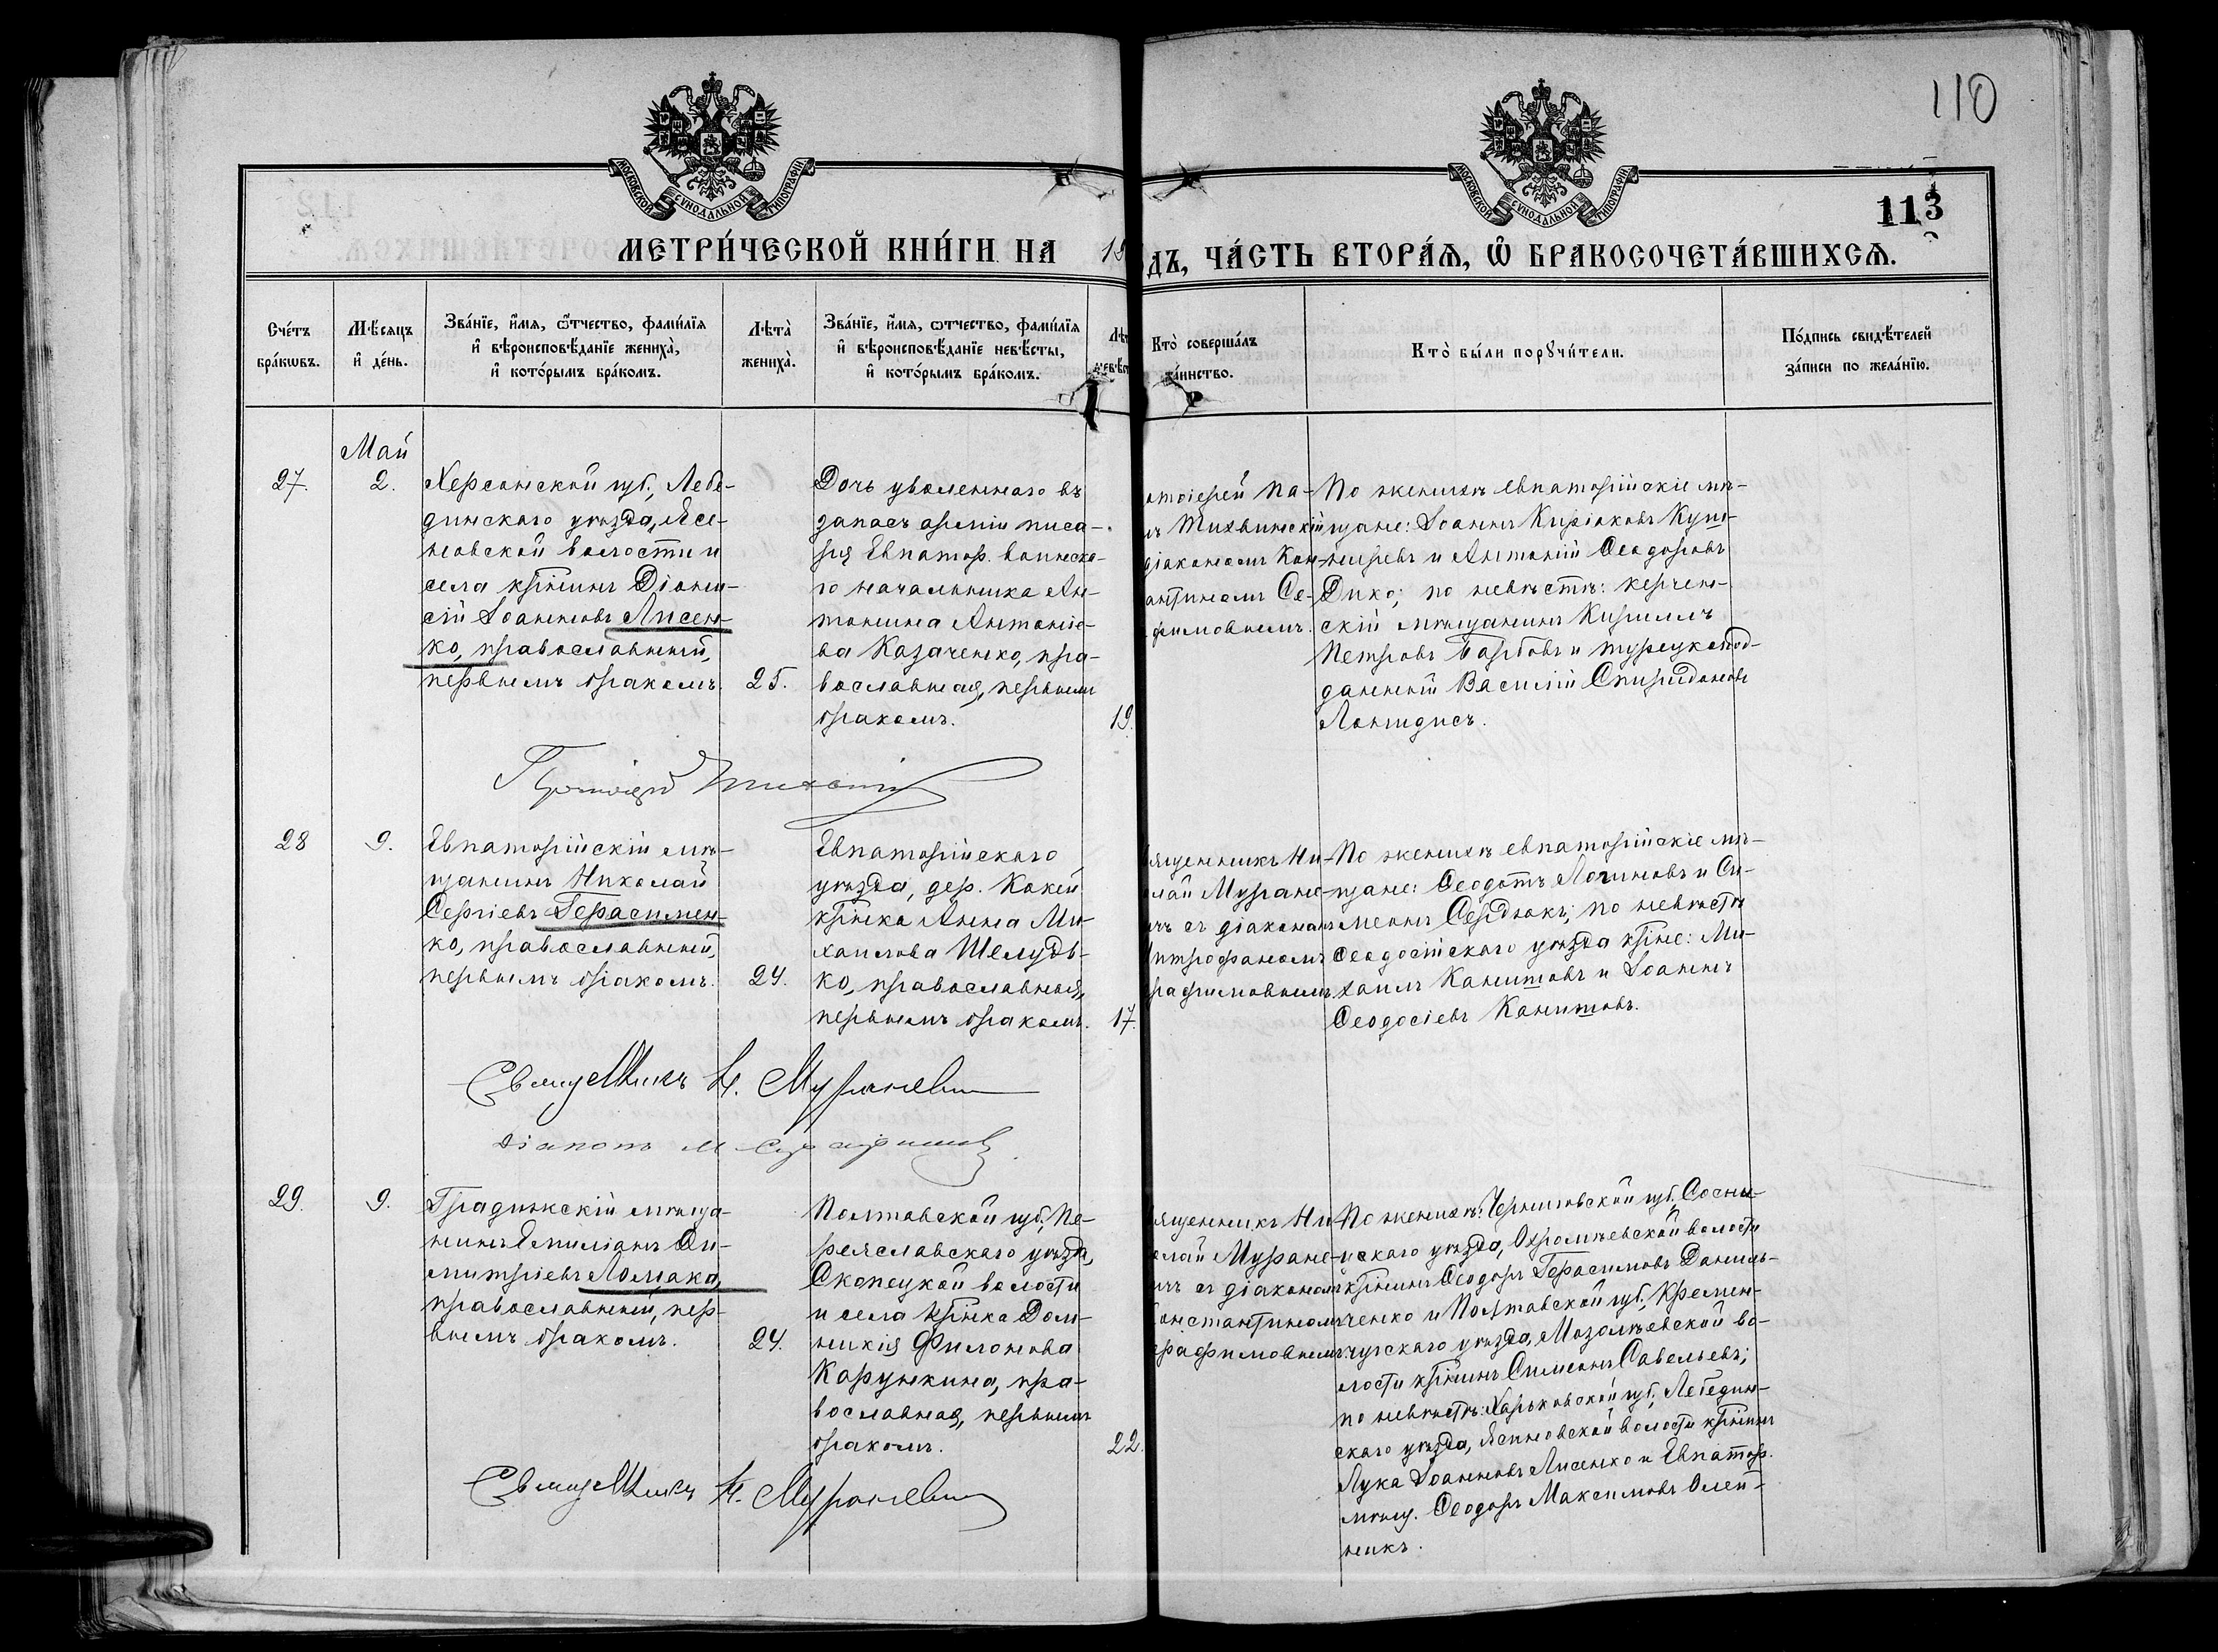 110
113
МОСКОВСКОЙ СѴНОДАЛЬНОЙ ТИПОГРАФІИ
МОСКОВСКОЙ СѴНОДАЛЬНОЙ ТИПОГРАФІИ
МЕТРИ́ЧЕСКОЙ КНИ́ГИ НА 19
ДЪ, ЧА́СТЬ ВТОРА́Ѧ, Ѽ БРАКОСОЧЕТА́ВШИХСѦ.
Сче́тъ бра́кѡвъ.
Мѣ́сяцъ и҆ де́нь.
Зва́нїе, и҆́мѧ, ѻ҆́тчество, фами́лїѧ и҆ вѣроисповѣ́данїе жениха̀, и҆ кото́рымъ бра́комъ.
Лѣта̀ жениха̀.
Зва́нїе, и҆́мѧ, ѻ҆́тчество, фами́лїѧ и҆ вѣроисповѣ́данїе невѣ́сты, и҆ кото́рымъ бра́комъ.
Кто̀ соверша́лъ
та́инство.
Кто̀ бы́ли порꙋчи́тели.
По́дпись свидѣ́телей за́писи по жела́нїю.
Май
27.
2.
Херсонской губ., Лебе-
динскаго уѣзда, Ясе-
новской волости и
села кр҃нинъ Діони-
сій Іоанновъ Лисен-
ко, православный,
первымъ бракомъ.
25.
Дочь уволеннаго въ
запасъ арміи писа-
ря Евпатор. воинска-
го начальника Ан-
тонина Антоніе-
ва Казаченко, пра-
вославная, первымъ
бракомъ.
19.
отоіерей Па-
лъ Тихвинскій
діакономъ Кон-
антиномъ Се-
фимовымъ.
По женихѣ евпаторійскіе мѣ-
щане: Іоаннъ Киріаковъ Куш-
ныревъ и Антоній Ѳеодоровъ
Дико; по невѣстѣ: керчен-
скій мѣщанинъ Кириллъ
Петровъ Барбовъ и турецкопод-
данный Василій Спиридоновъ
Лонгидисъ.
Протоіерей Тихвинскій
28
9.
Евпаторійскій мѣ-
щанинъ Николай
Сергіевъ Герасимен-
ко, православный,
первымъ бракомъ.
24.
Евпаторійскаго
уѣзда, дер. Кокей
кр҃нка Анна Ми-
хаилова Шелудь-
ко, православная,
первымъ бракомъ.
17.
ященникъ Ни-
лай Муране-
чъ съ діакономъ
итрофаномъ
рафимовымъ.
По женихѣ евпаторійскіе мѣ-
щане: Ѳеодотъ Логиновъ и Си-
меонъ Сердюкъ; по невѣстѣ
Ѳеодосійскаго уѣзда кр҃не: Ми-
хаилъ Канитовъ и Іоаннъ
Ѳеодосіевъ Канитовъ.
Священникъ Н. Мураневич
Діаконъ М Серафимов
29.
9.
Градижскій мѣща-
нинъ Емиліанъ Ди-
митріевъ Ломака,
православный, пер-
вымъ бракомъ.
24.
Полтавской губ., Пе-
реяславскаго уѣзда,
Скопецкой волости
и села кр҃нка Дом-
никія Филонова
Карункина, пра-
вославная, первымъ
бракомъ.
22.
ященникъ Ни
олай Муране-
чъ съ діакономъ
онстантиномъ
рафимовымъ.
По женихѣ: Черниговской губ., Сосни-
цскаго уѣзда, Охрамѣевской волости
кр҃нинъ Ѳеодоръ Герасимовъ Даниль-
ченко и Полтавской губ., Кремен-
чугскаго уѣзда, Мозолѣевской во-
лости кр҃нинъ Симеонъ Савельевъ;
по невѣстѣ: Харьковской губ., Лебедин-
скаго уѣзда, Ясеновской волости кр҃нинъ
Лука Іоанновъ Лисенко и Евпатор.
мѣщ. Ѳеодоръ Максимовъ Олей-
никъ.
Священникъ Н. Мураневич